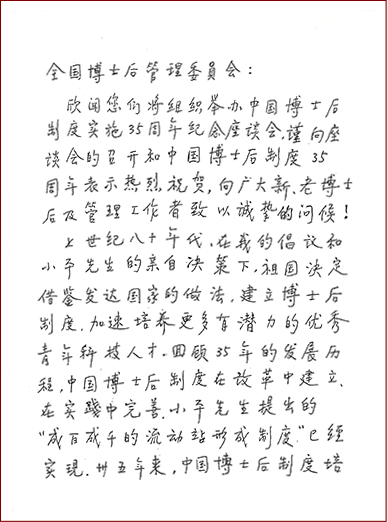 全国博士后管理委員会：
欣闻您们将组织举办中国博士后
制度实施35周年纪念座谈会，谨向座
谈会的召开和中国博士后制度35
周年表示热烈祝贺，向广大新、老博士
后及管理工作者致以诚挚的问候！
上世纪八十年代，在我的倡议和
小平先生的亲自决策下，祖国决定
借鉴发达国家的做法，建立博士后
制度，加速培养更多有潜力的优秀
青年科技人才．回顾35年的发展历
程，中国博士后制度在改革中建立、
在实踐中完善．小平先生提出的
“成百成千的流动站形成制度”已經
实現．卅五年来，中国博士后制度培